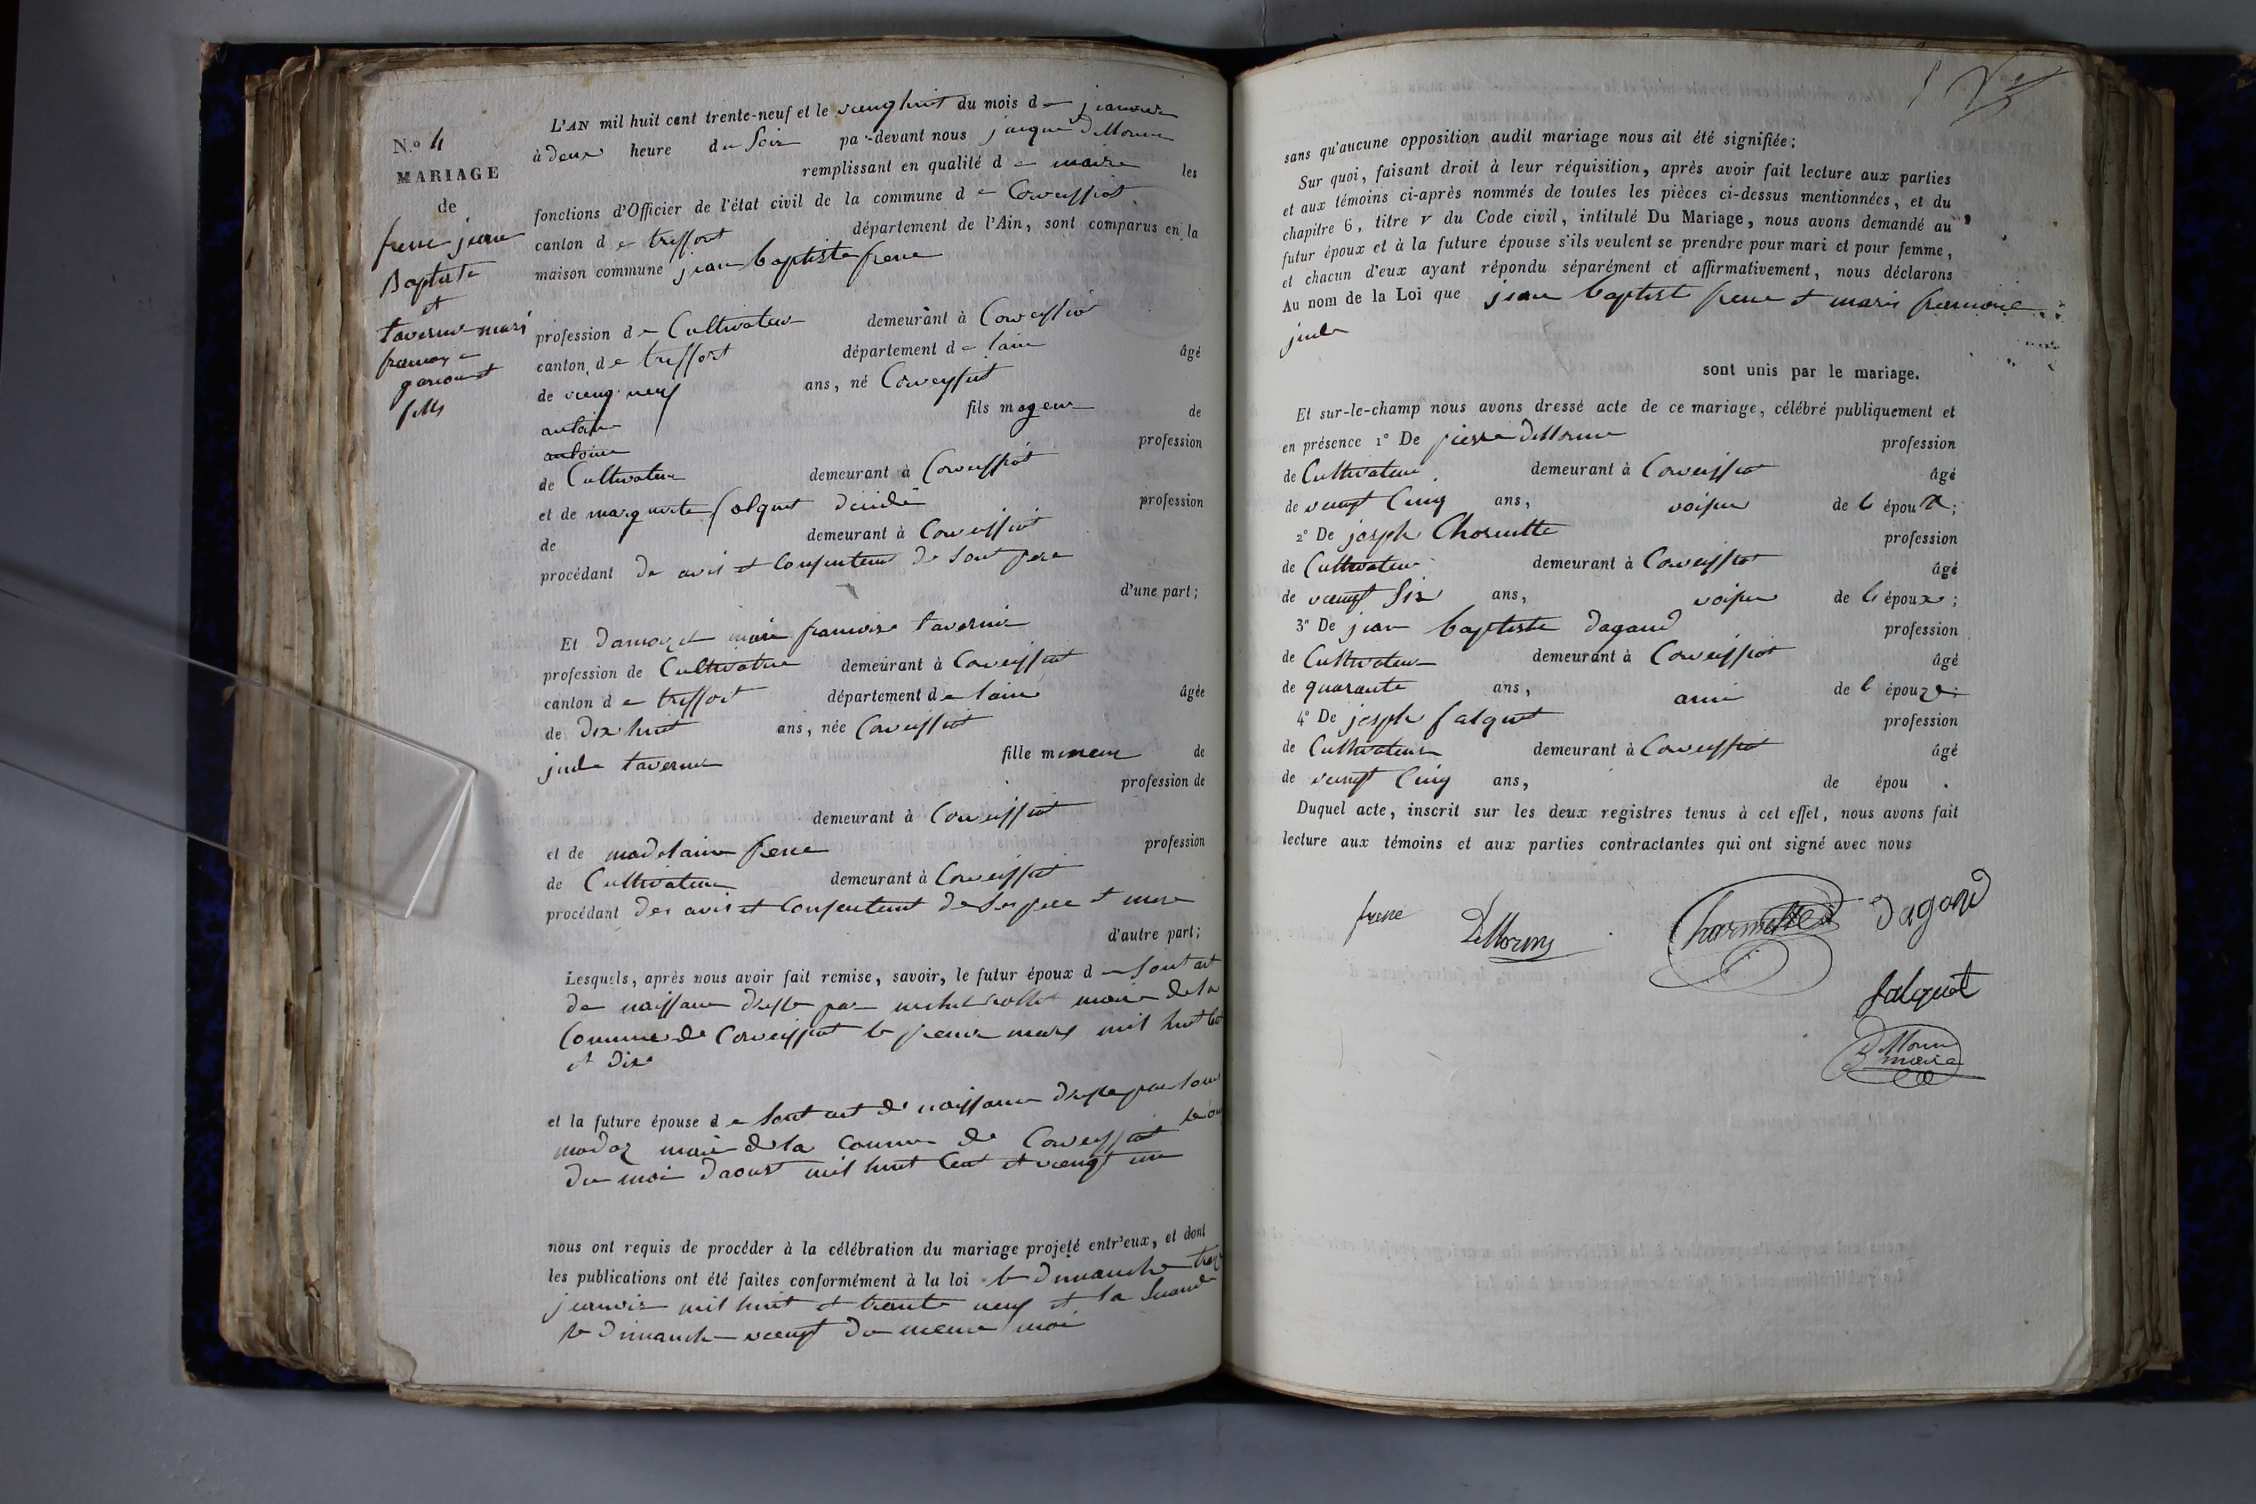 N.o 4
MARIAGE
de
frene jean
Baptiste
et
tavernie mari
garcon et
fille
L'AN mil huit cent trente-neuf et le veng huit du mois de jeanvier
à deux heure du Soir par-devant nous jacque dellorme
remplissant en qualité de maire les
fonctions d'Officier de l'état civil de la commune de Corveissiat
canton de treffort département de l'Ain, sont comparus en la
maison commune jean baptiste frene
profession de Cultivateur demeurant à Corveissiat
canton de treffort département de lain âgé
de veng neuf ans, né Corveyssiat
antoine fils mageur de
antoine profession
de Cultivateur demeurant à Corveissiat
et de marguerite falquet décidé profession
de demeurant à Corveissiat
procédant de avis et Consentement de Sont pere
d'une part;
Et marie francoise tavernie
profession de Cultivateur demeurant à Corveissiat
canton de treffort département de lain âgée
de dix huit ans, née Corveissiat
jude tavernie fille mineur de
profession de
demeurant à Corveissiat
et de madelaine frene profession
de Cultivateur demeurant à Corveissiat
procédant des avis et Consentement de Ses pere et mere
d'autre part;
Lesquels, après nous avoir fait remise, savoir, le futur époux de Sont act
de naissance par maire de la
Commune de Corveissiat le mars mil huit Cent
et dix
et la future épouse de Sont act de naissance par
maire de la Commune de Corveissiat
du moi daoust mil huit Cent et vengt un
nous ont requis de procéder à la célébration du mariage projeté entr'eux, et dont
les publications ont été faites conformément à la loi le dimanche
jeanvier mil huit et trente neuf et la
le dimanche vengt du meme moi
sans qu'aucune opposition audit mariage nous ait été signifiée;
Sur quoi, faisant droit à leur réquisition, après avoir fait lecture aux parties
et aux témoins ci-après nommés de toutes les pièces ci-dessus mentionnées, et du
chapitre 6, titre V du Code civil, intitulé Du Mariage, nous avons demandé au
futur époux et à la future épouse s'ils veulent se prendre pour mari et pour femme,
et chacun d'eux ayant répondu séparément et affirmativement, nous déclarons
Au nom de la Loi que jean baptiste frene et marie francoise
jude
sont unis par le mariage.
Et sur-le-champ nous avons dressé acte de ce mariage, célébré publiquement et
en présence 1° De pierre dellorme profession
de Cultivateur demeurant à Corveissiat âgé
de vengt Cinq ans, voisin de l époux;
2° De joseph Charmette profession
de Cultivateur demeurant à Corveissiat âgé
de vengt Six ans, voisin de l époux;
3° De jean baptiste dagand profession
de Cultivateur demeurant à Corveissiat âgé
de quarante ans, ami de l épouze;
4° De joseph falquet profession
de Cultivateur demeurant à Corveissiat âgé
de vengt Cinq ans, de épou .
Duquel acte, inscrit sur les deux registres tenus à cet effet, nous avons fait
lecture aux témoins et aux parties contractantes qui ont signé avec nous
frene
Charmette
dagand
falquet
Dellorme
maire